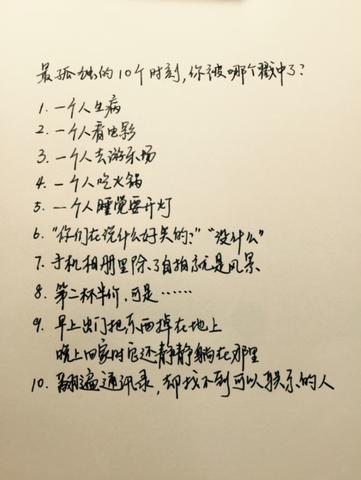 最孤独的10个时刻,你被哪个戳中了?
1. 一个人生病
2. 一个人看电影
3. 一个人去游乐场
4. 一个人吃火锅
5. 一个人睡觉要开灯
6. “你们在说什么好笑的?”“没什么”
7. 手机相册里除了自拍就是风景
8. 第二杯半价,可是……
9. 早上出门把东西掉在地上
晚上回家时它还静静躺在那里
10. 翻遍通讯录,却找不到可以联系的人